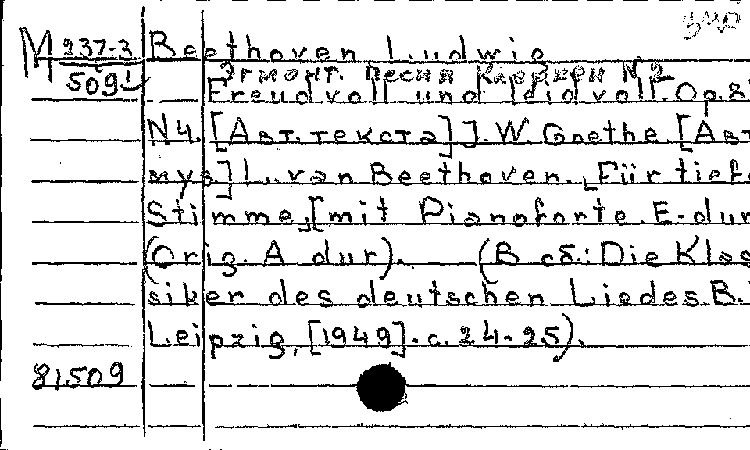 M 237-3 Beethoven Ludwig
509
Эгмонт. Песня Клерхен N 2
Freudvoll und leidvoll. Op. 8
N 4. [Авт. текста] J. W. Goethe. [Авт
муз] L. van Beethoven. Für tief
Stimme, [mit Pianoforte. E-dur
(Orig. A dur). (В сб.: Die Klas
siker des deutschen Liedes B.
Leipzig, [1949]. c. 24-25).
81509